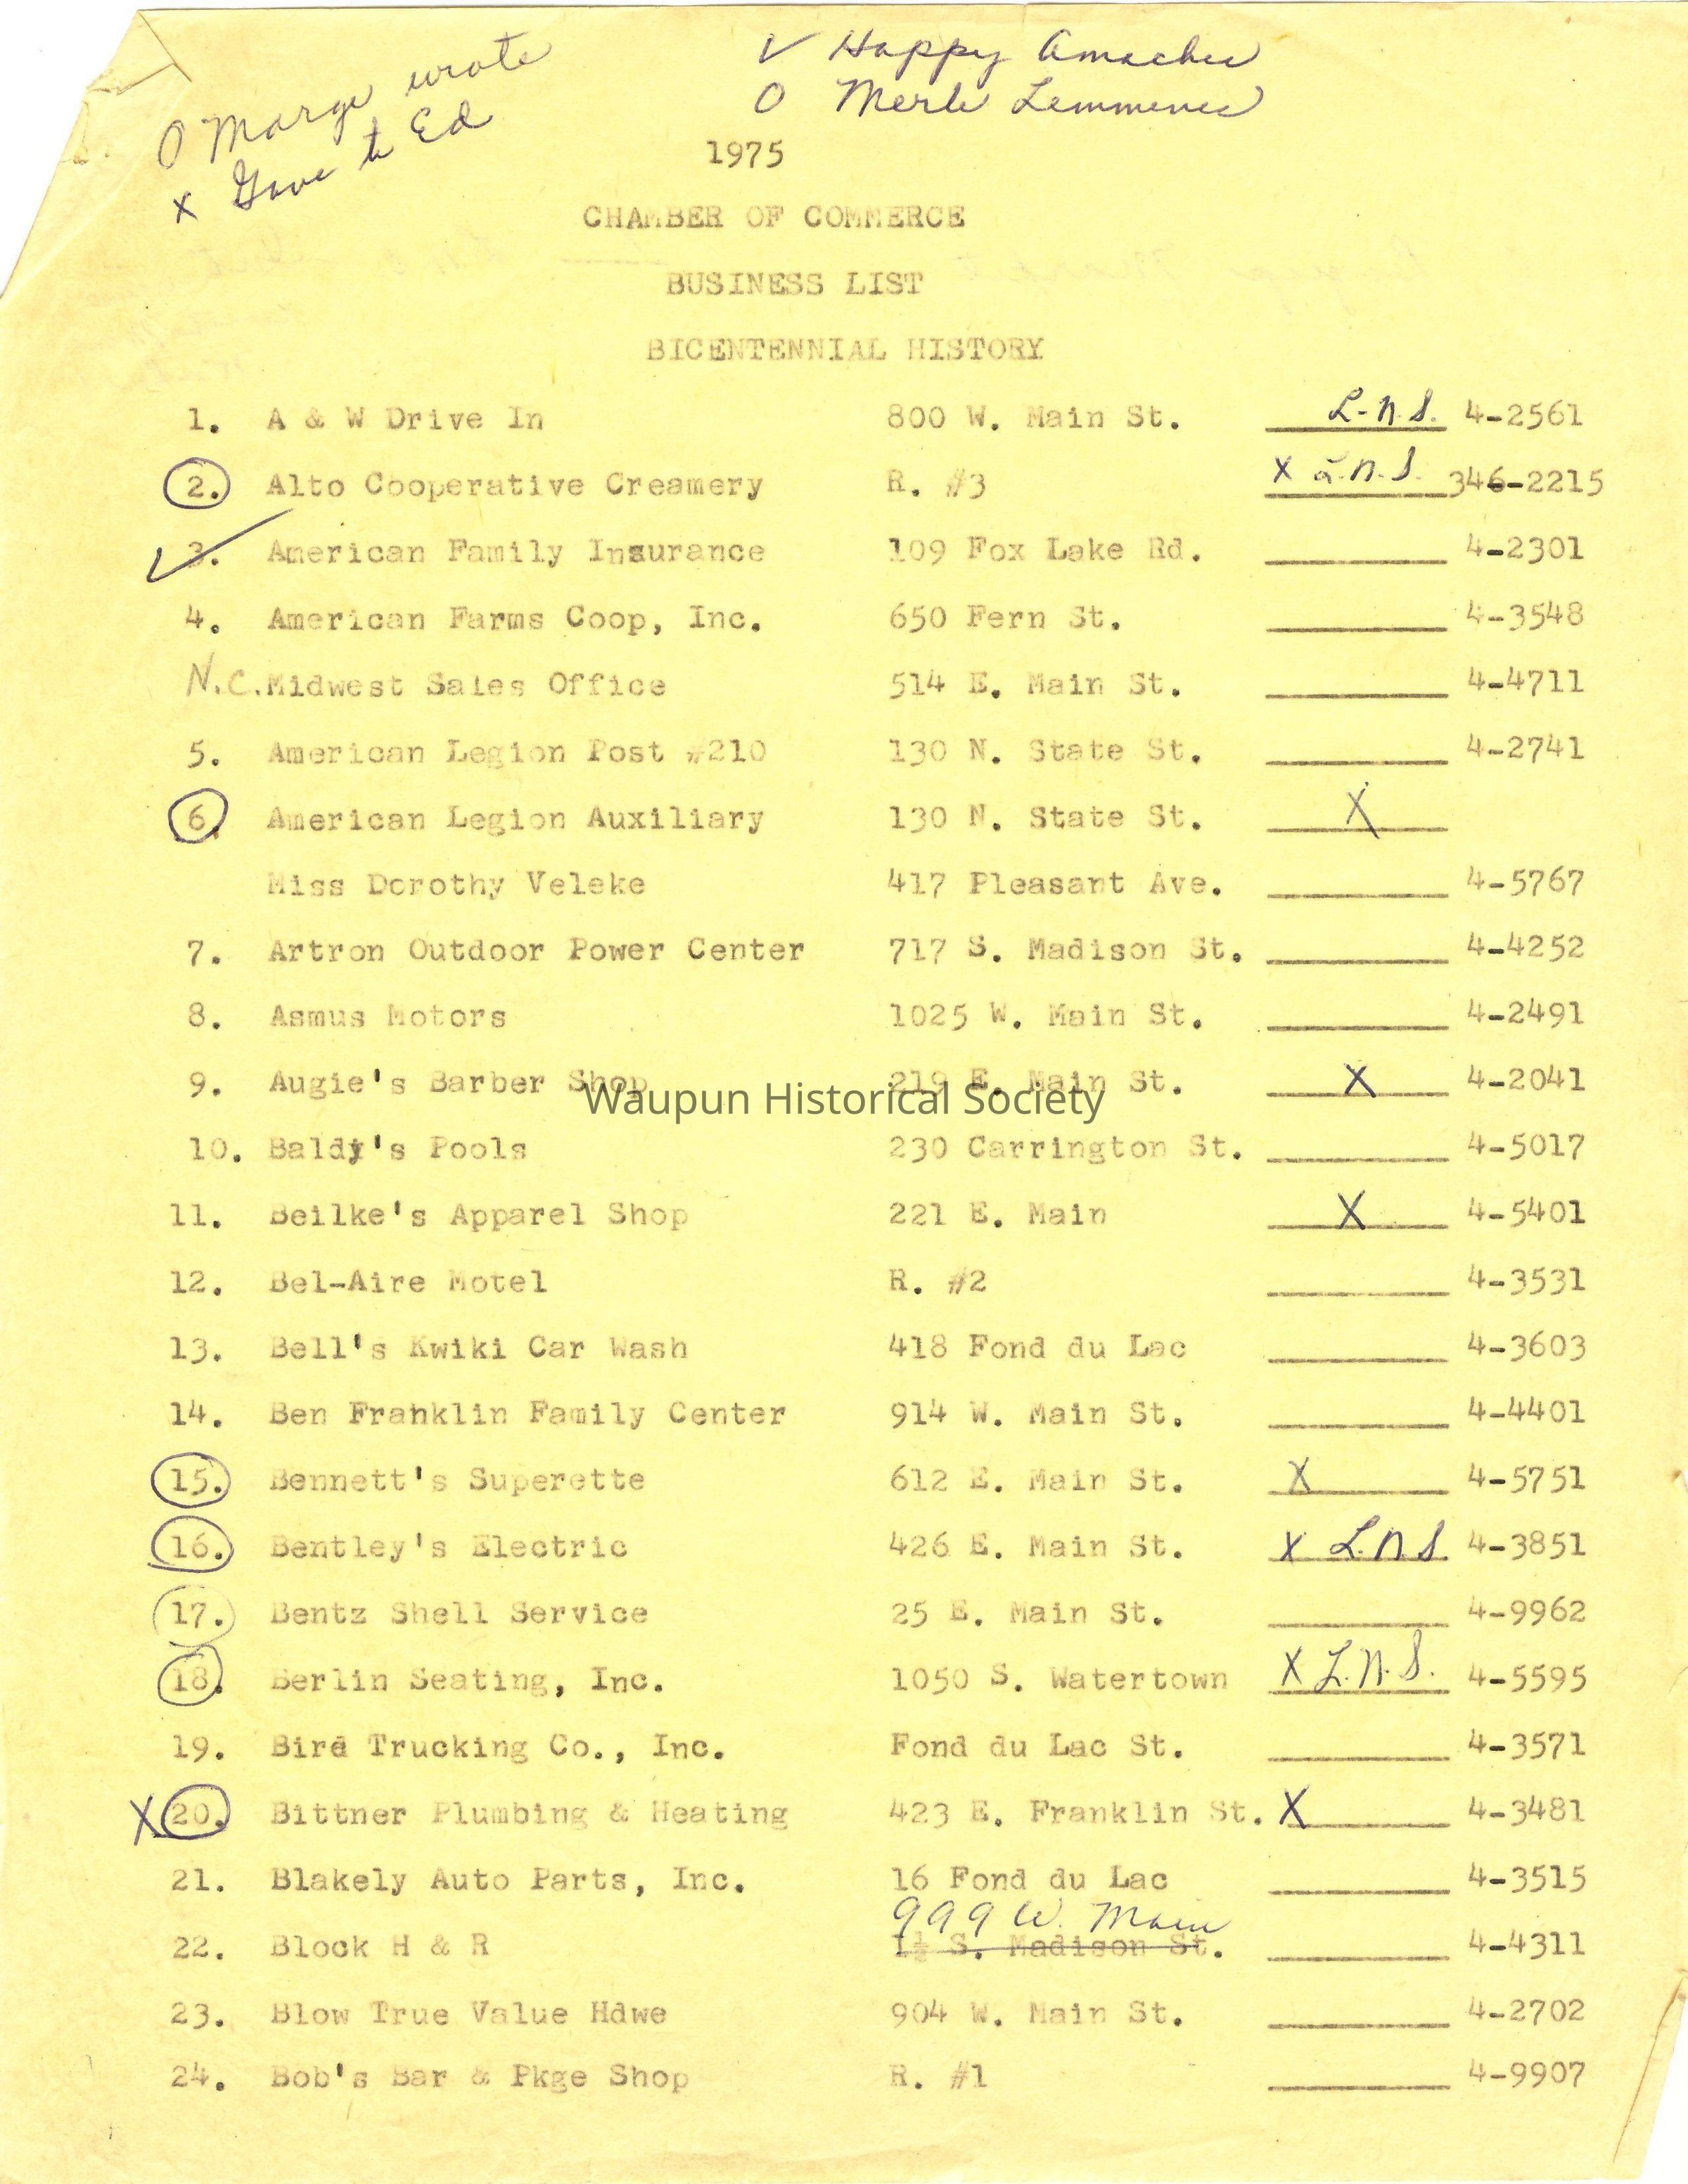 O Marge wrote
x Gave to Ed
✓ Happy Amacher
O Merle Lemmenes
1975
CHAMBER OF COMMERCE
BUSINESS LIST
BICENTENNIAL HISTORY
1. A & W Drive In 800 W. Main St. L-N.S. 4-2561
2. Alto Cooperative Creamery R. #3 X L.N.S. 346-2215
✓ 3. American Family Insurance 109 Fox Lake Rd. ________ 4-2301
4. American Farms Coop, Inc. 650 Fern St. ________ 4-3548
N.C. Midwest Sales Office 514 E. Main St. ________ 4-4711
5. American Legion Post #210 130 N. State St. ________ 4-2741
6. American Legion Auxiliary 130 N. State St. X
Miss Dorothy Veleke 417 Pleasant Ave. ________ 4-5767
7. Artron Outdoor Power Center 717 S. Madison St. ________ 4-4252
8. Asmus Motors 1025 W. Main St. ________ 4-2491
9. Augie's Barber Shop 219 E. Main St. X 4-2041
Waupun Historical Society
10. Baldy's Pools 230 Carrington St. ________ 4-5017
11. Beilke's Apparel Shop 221 E. Main X 4-5401
12. Bel-Aire Motel R. #2 ________ 4-3531
13. Bell's Kwiki Car Wash 418 Fond du Lac ________ 4-3603
14. Ben Franklin Family Center 914 W. Main St. ________ 4-4401
15. Bennett's Superette 612 E. Main St. X 4-5751
16. Bentley's Electric 426 E. Main St. X L.N.S. 4-3851
17. Bentz Shell Service 25 E. Main St. ________ 4-9962
18. Berlin Seating, Inc. 1050 S. Watertown X L.N.S. 4-5595
19. Bird Trucking Co., Inc. Fond du Lac St. ________ 4-3571
X 20. Bittner Plumbing & Heating 423 E. Franklin St. X 4-3481
21. Blakely Auto Parts, Inc. 16 Fond du Lac ________ 4-3515
999 W. Main
22. Block H & R 1½ S. Madison St. ________ 4-4311
23. Blow True Value Hdwe 904 W. Main St. ________ 4-2702
24. Bob's Bar & Pkge Shop R. #1 ________ 4-9907